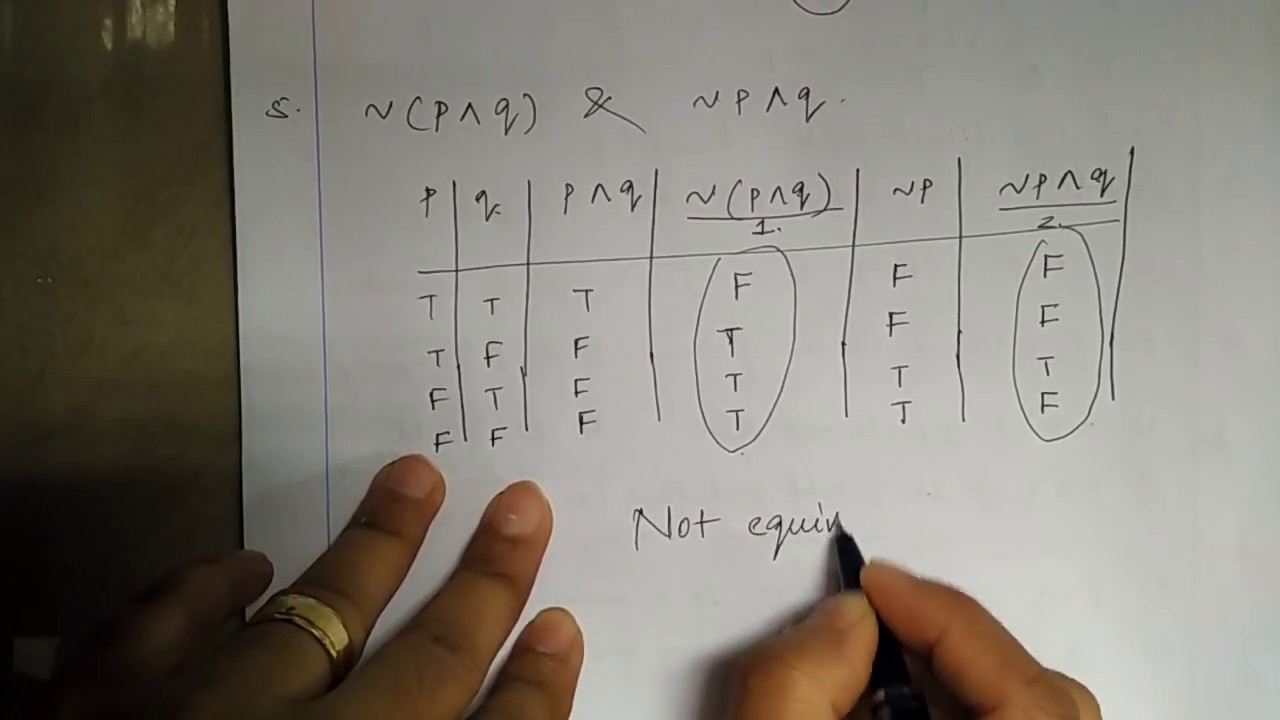 5. ~(p∧q) & ~p∧q.
p | q | p∧q | ~(p∧q) | ~p | ~p∧q |
1. 2.
T T T F F F
T F F T F F
F T F T T T
F F F T T F
Not equiv